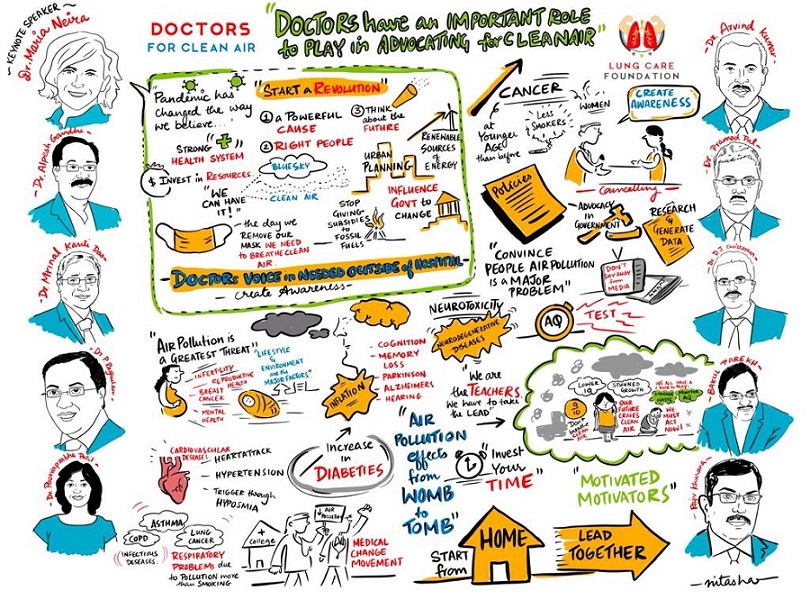 KEYNOTE SPEAKER
Dr. Maria Neira
DOCTORS
FOR CLEAN AIR
"DOCTORS have an IMPORTANT ROLE
to PLAY in ADVOCATING for CLEAN AIR"
LUNG CARE
FOUNDATION
Dr. Arvind Kumar
"Pandemic has
changed the way
we believe...
STRONG
HEALTH SYSTEM
$ Invest in RESOURCES
"WE
CAN HAVE
IT!"
"START a REVOLUTION"
① a POWERFUL
CAUSE
② RIGHT PEOPLE
③ THINK
about the
FUTURE
BLUESKY
CLEAN AIR
URBAN
PLANNING
RENEWABLE
SOURCES
of
ENERGY
the day we
REMOVE OUR
MASK WE NEED
TO BREATHE CLEAN
AIR
STOP
GIVING
SUBSIDIES
to
FOSSIL
FUELS
INFLUENCE
GOVT to
CHANGE
DOCTORs VOICE is NEEDED OUTSIDE of HOSPITAL
- Create Awareness -
CANCER
at
YOUNGER
AGE
than before
Less
SMOKERS
WOMEN
CREATE
AWARENESS
Councelling
Policies
ADVOCACY
in
GOVERNMENT
RESEARCH
&
GENERATE
DATA
"CONVINCE
PEOPLE AIR POLLUTION
IS A MAJOR
PROBLEM"
DON'T
SHY AWAY
from
MEDIA
AQ
TEST
Dr. Alpesh Gandhi
Dr. Mrinal Kanti Das
"Air Pollution is
a GREATEST THREAT"
INFERTILITY
REPRODUCTIVE
HEALTH
BREAST
CANCER
MENTAL
HEALTH
"LIFESTYLE
&
ENVIRONMENT
are the
MAJOR FACTORS"
INFLATION
COGNITION
MEMORY
LOSS
PARKINSON
ALZHEIMERS
HEARING
NEUROTOXICITY
NEURODEGENERATIVE
DISEASES
"We are
the TEACHERS,
We have to take
the LEAD"
LOWER
IQ
STUNNED
GROWTH
OUR
FUTURE
CRAVES
CLEAN
AIR
WE
MUST
ACT
NOW!
BAKUL PAREKH
CARDIOVASCULAR
DISEASES
HEARTATTACK
HYPERTENSION
TRIGGER through
HYPOSMIA
Increase
in
DIABETIES
"AIR
POLLUTION
effects
from
WOMB
to
TOMB"
"Invest
Your
TIME"
"MOTIVATED
MOTIVATORS"
ASTHMA
COPD
LUNG
CANCER
INFECTIOUS
DISEASES
RESPIRATORY
PROBLEMS due
to POLLUTION more
than SMOKING
college
AIR
POLLUTION
MEDICAL
CHANGE
MOVEMENT
START
from
HOME
LEAD
TOGETHER
nitashar